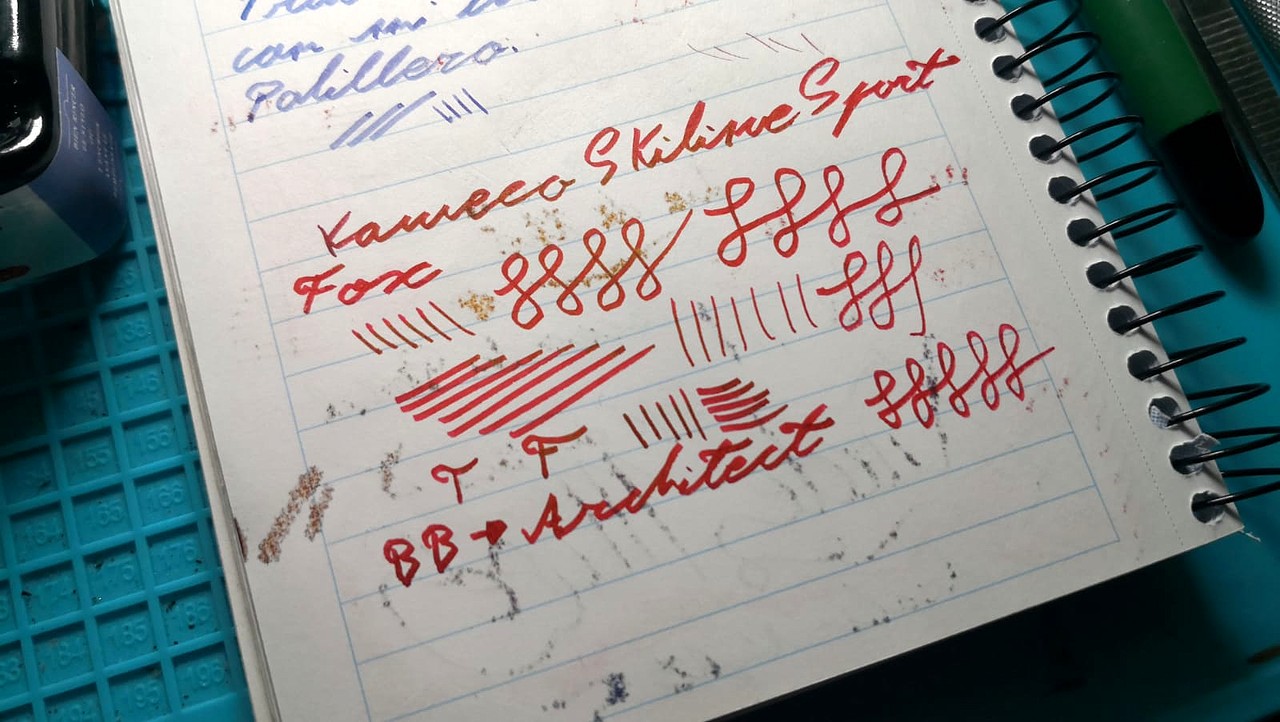 con mi
Palillero.
Kaweco SKiline Sport
Fox
T F
BB → Architect